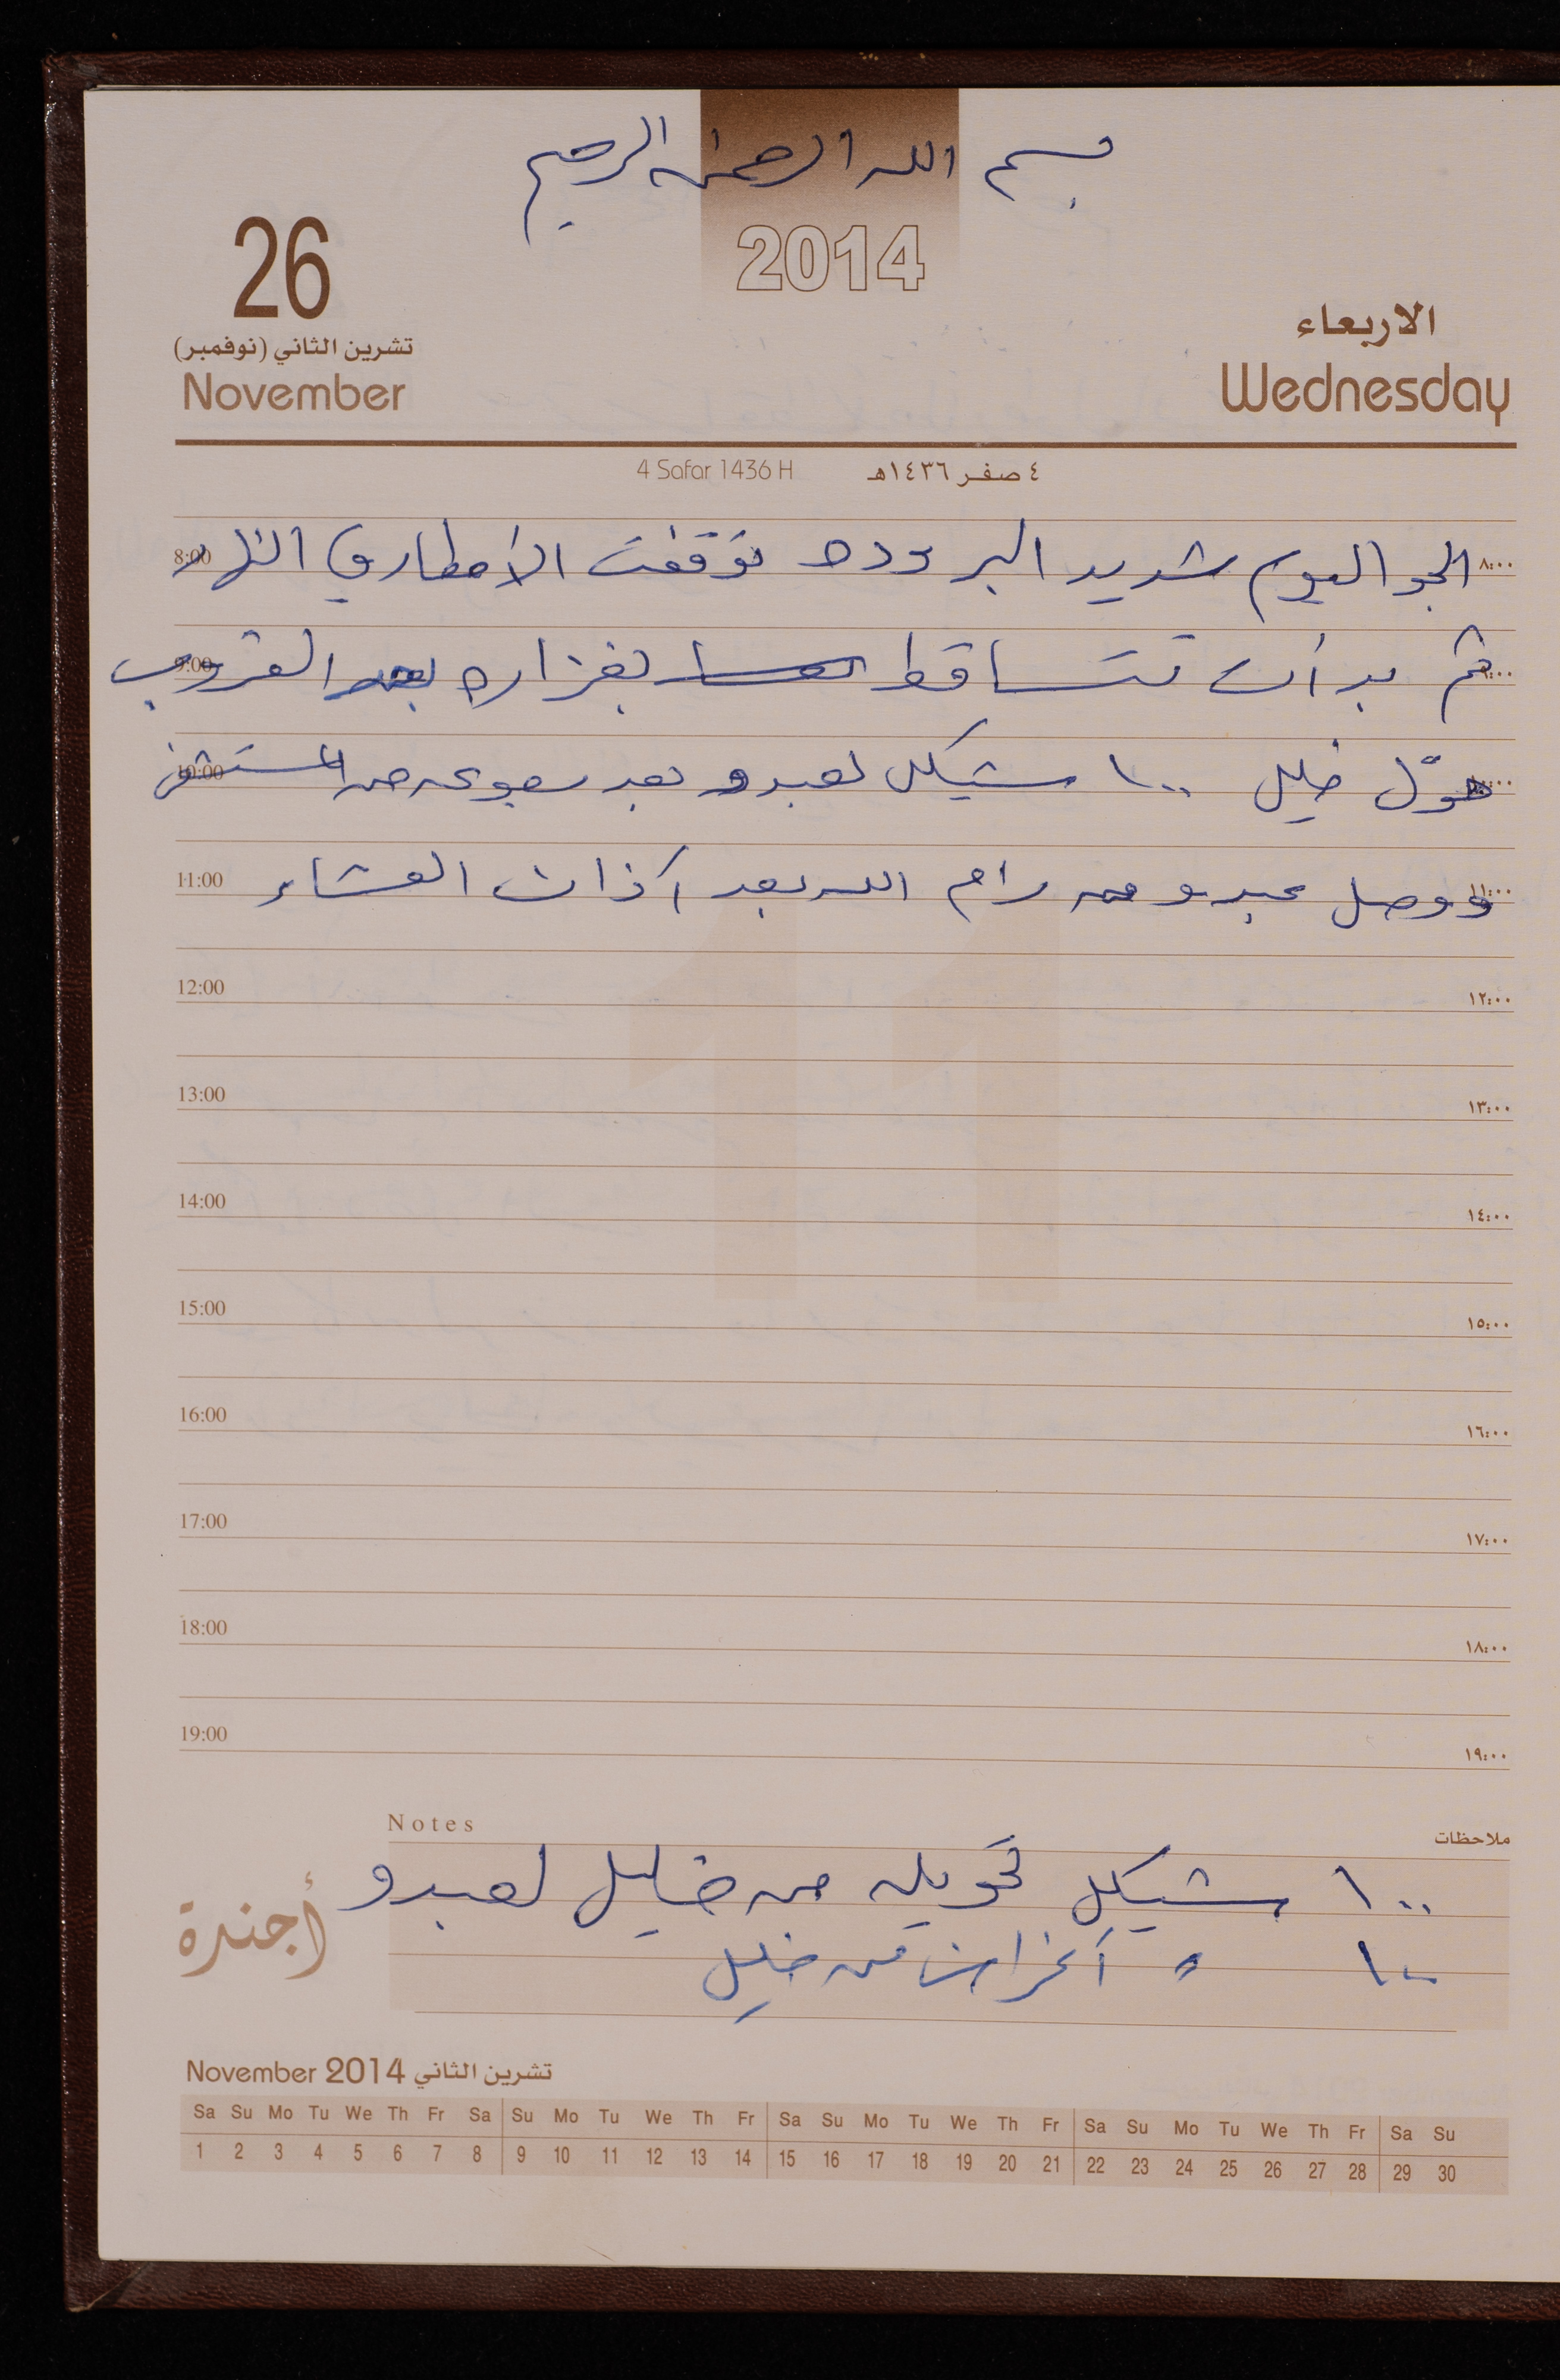 بسم الله الرحمن الرحيم
2014
26
تشرين الثاني (نوفمبر)
November
الاربعاء
Wednesday
4 Safar 1436 H ٤ صفر ١٤٣٦هـ
8:00 الجو اليوم شديد البرودة توقفت الأمطار في النهار ٨:٠٠
9:00 ثم بدأت تتساقط بغزارة بعد الغروب ٩:٠٠
10:00 حوّل خليل ١٠٠ شيكل لعبدو بعد رجوعه من المستشفى ١٠:٠٠
11:00 ووصل عبدو من رام الله بعد أذان العشاء ١١:٠٠
12:00 ١٢:٠٠
13:00 ١٣:٠٠
14:00 ١٤:٠٠
15:00 ١٥:٠٠
16:00 ١٦:٠٠
17:00 ١٧:٠٠
18:00 ١٨:٠٠
19:00 ١٩:٠٠
Notes ملاحظات
١٠٠ شيكل تحويل من خليل لعبدو
١٠ أغراض من خليل
أجندة
November 2014 تشرين الثاني
Sa Su Mo Tu We Th Fr Sa Su Mo Tu We Th Fr Sa Su Mo Tu We Th Fr Sa Su Mo Tu We Th Fr Sa Su
1 2 3 4 5 6 7 8 9 10 11 12 13 14 15 16 17 18 19 20 21 22 23 24 25 26 27 28 29 30